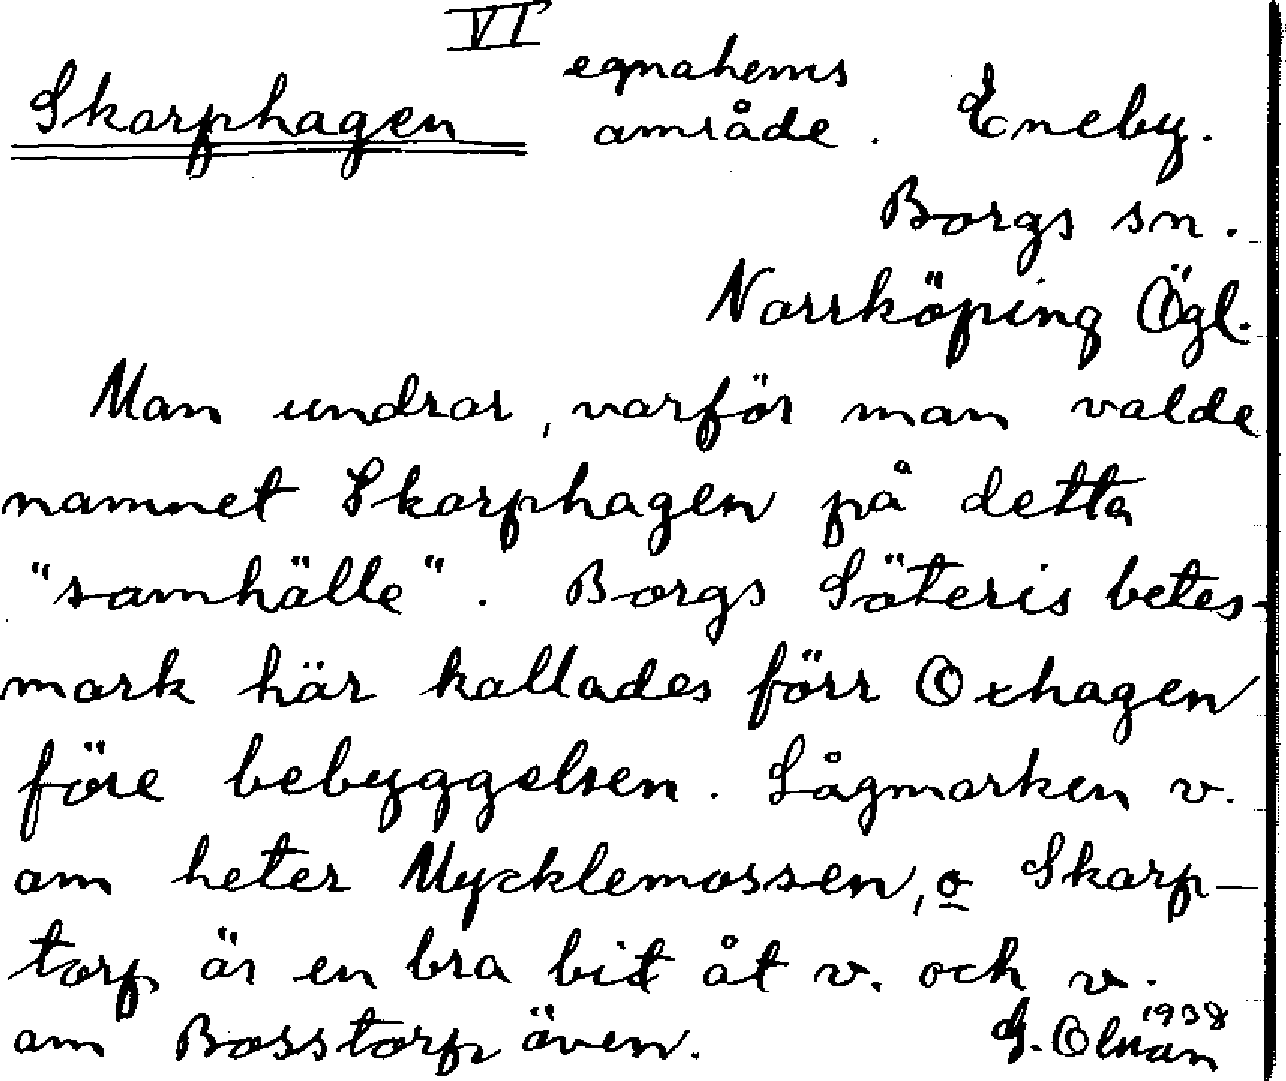 VI
Skarphagen egnahems
område. Eneby.
Borgs sn.
Norrköping Ögl.
Man undrar, varför man valde
namnet Skarphagen på detta
"samhälle". Borgs Säteris betes-
mark här kallades förr Oxhagen
före bebyggelsen. Lågmarken v.
om heter Mycklemossen, o Skarp-
torp är en bra bit åt v. och v.
om Bosstorp även. 1938